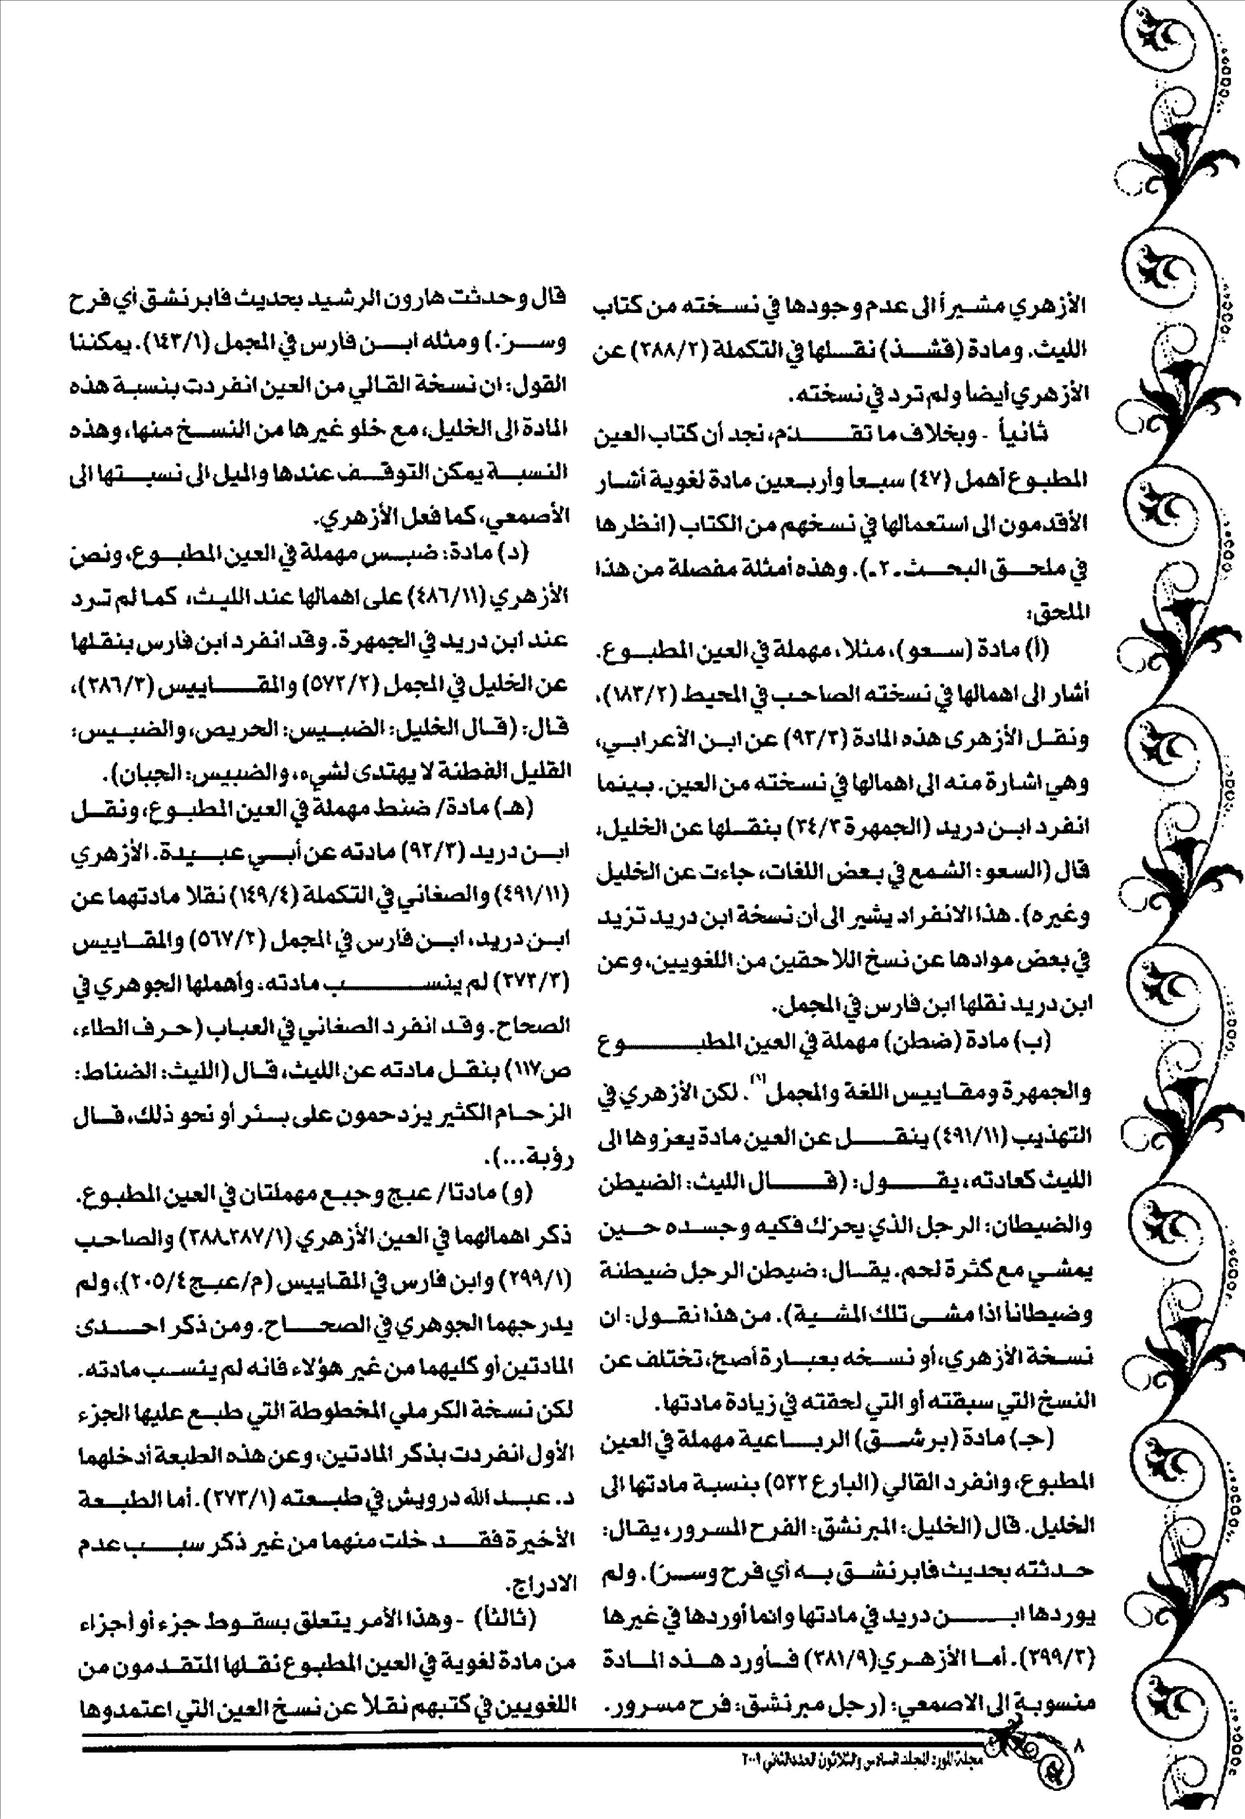 الأزهري مشيراً الى عدم وجودها في نسخته من كتاب
الليث. ومادة (قشذ) نقلها في التكملة (٣٨٨/٢) عن
الأزهري أيضاً ولم ترد في نسخته.
ثانياً - وبخلاف ما تقدّم، نجد أن كتاب العين
المطبوع أهمل (٤٧) سبعاً وأربعين مادة لغوية أشار
الأقدمون الى استعمالها في نسخهم من الكتاب (انظرها
في ملحق البحث ـ٢ـ). وهذه أمثلة مفصلة من هذا
الملحق:
(أ) مادة (سعو)، مثلا، مهملة في العين المطبوع.
أشار الى اهمالها في نسخته الصاحب في المحيط (١٨٣/٢)،
ونقل الأزهرى هذه المادة (٩٢/٣) عن ابن الأعرابي،
وهي اشارة منه الى اهمالها في نسخته من العين. بينما
انفرد ابن دريد (الجمهرة ٣٤/٣) بنقلها عن الخليل،
قال (السعو: الشمع في بعض اللغات، جاءت عن الخليل
وغيره). هذا الانفراد يشير الى أن نسخة ابن دريد تزيد
في بعض موادها عن نسخ اللاحقين من اللغويين، وعن
ابن دريد نقلها ابن فارس في المجمل.
(ب) مادة (ضطن) مهملة في العين المطبوع
والجمهرة ومقاييس اللغة والمجمل(٦). لكن الأزهري في
التهذيب (٤٩١/١١) ينقل عن العين مادة يعزوها الى
الليث كعادته، يقول: (قال الليث: الضيطن
والضيطان: الرجل الذي يحرّك فكيه وجسده حين
يمشي مع كثرة لحم. يقال: ضيطن الرجل ضيطنة
وضيطاناً اذا مشى تلك المشية). من هذا نقول: ان
نسخة الأزهري، أو نسخه بعبارة أصح، تختلف عن
النسخ التي سبقته أو التي لحقته في زيادة مادتها.
(جـ) مادة (برشق) الرباعية مهملة في العين
المطبوع، وانفرد القالي (البارع ٥٣٢) بنسبة مادتها الى
الخليل. قال (الخليل: المبرنشق: الفرح المسرور، يقال:
حدثته بحديث فابرنشق به أي فرح وسرّ). ولم
يوردها ابن دريد في مادتها وانما أوردها في غيرها
(٣٩٩/٣). أما الأزهري(٣٨١/٩) فأورد هذه المادة
منسوبة الى الاصمعي: (رجل مبرنشق: فرح مسرور.
قال وحدثت هارون الرشيد بحديث فابرنشق أي فرح
وسرّ.) ومثله ابن فارس في المجمل (١٤٣/١). يمكننا
القول: ان نسخة القالي من العين انفردت بنسبة هذه
المادة الى الخليل، مع خلو غيرها من النسخ منها، وهذه
النسبة يمكن التوقف عندها والميل الى نسبتها الى
الأصمعي، كما فعل الأزهري.
(د) مادة: ضبس مهملة في العين المطبوع، ونصّ
الأزهري (٤٨٦/١١) على اهمالها عند الليث، كما لم ترد
عند ابن دريد في الجمهرة. وقد انفرد ابن فارس بنقلها
عن الخليل في المجمل (٥٧٢/٢) والمقاييس (٣٨٦/٣)،
قال: (قال الخليل: الضبيس: الحريص، والضبيس:
القليل الفطنة لا يهتدى لشيء، والضبيس: الجبان).
(هـ) مادة/ ضنط مهملة في العين المطبوع، ونقل
ابن دريد (٩٢/٣) مادته عن أبي عبيدة. الأزهري
(٤٩١/١١) والصغاني في التكملة (١٤٩/٤) نقلا مادتهما عن
ابن دريد، ابن فارس في المجمل (٥٦٧/٢) والمقاييس
(٣٧٢/٣) لم ينسب مادته، وأهملها الجوهري في
الصحاح. وقد انفرد الصغاني في العباب (حرف الطاء،
ص١١٧) بنقل مادته عن الليث، قال (الليث: الضناط:
الزحام الكثير يزدحمون على بئر أو نحو ذلك، قال
رؤبة...).
(و) مادتا/ عبج وجبع مهملتان في العين المطبوع.
ذكر اهمالهما في العين الأزهري (٣٨٧/١ـ٣٨٨) والصاحب
(٢٩٩/١) وابن فارس في المقاييس (م/عبج ٢٠٥/٤)، ولم
يدرجهما الجوهري في الصحاح. ومن ذكر احدى
المادتين أو كليهما من غير هؤلاء فانه لم ينسب مادته.
لكن نسخة الكرملي المخطوطة التي طبع عليها الجزء
الأول انفردت بذكر المادتين، وعن هذه الطبعة أدخلهما
د. عبد الله درويش في طبعته (٢٧٣/١). أما الطبعة
الأخيرة فقد خلت منهما من غير ذكر سبب عدم
الادراج.
(ثالثاً) - وهذا الأمر يتعلق بسقوط جزء أو أجزاء
من مادة لغوية في العين المطبوع نقلها المتقدمون من
اللغويين في كتبهم نقلاً عن نسخ العين التي اعتمدوها
٨
مجلة المورد المجلد السادس والثلاثون العدد الثاني ٢٠٠٩